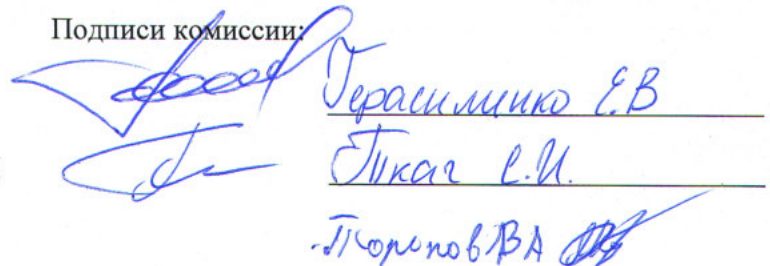 Подписи комиссии:
Герасименко Е.В
Ткач С.И.
В А